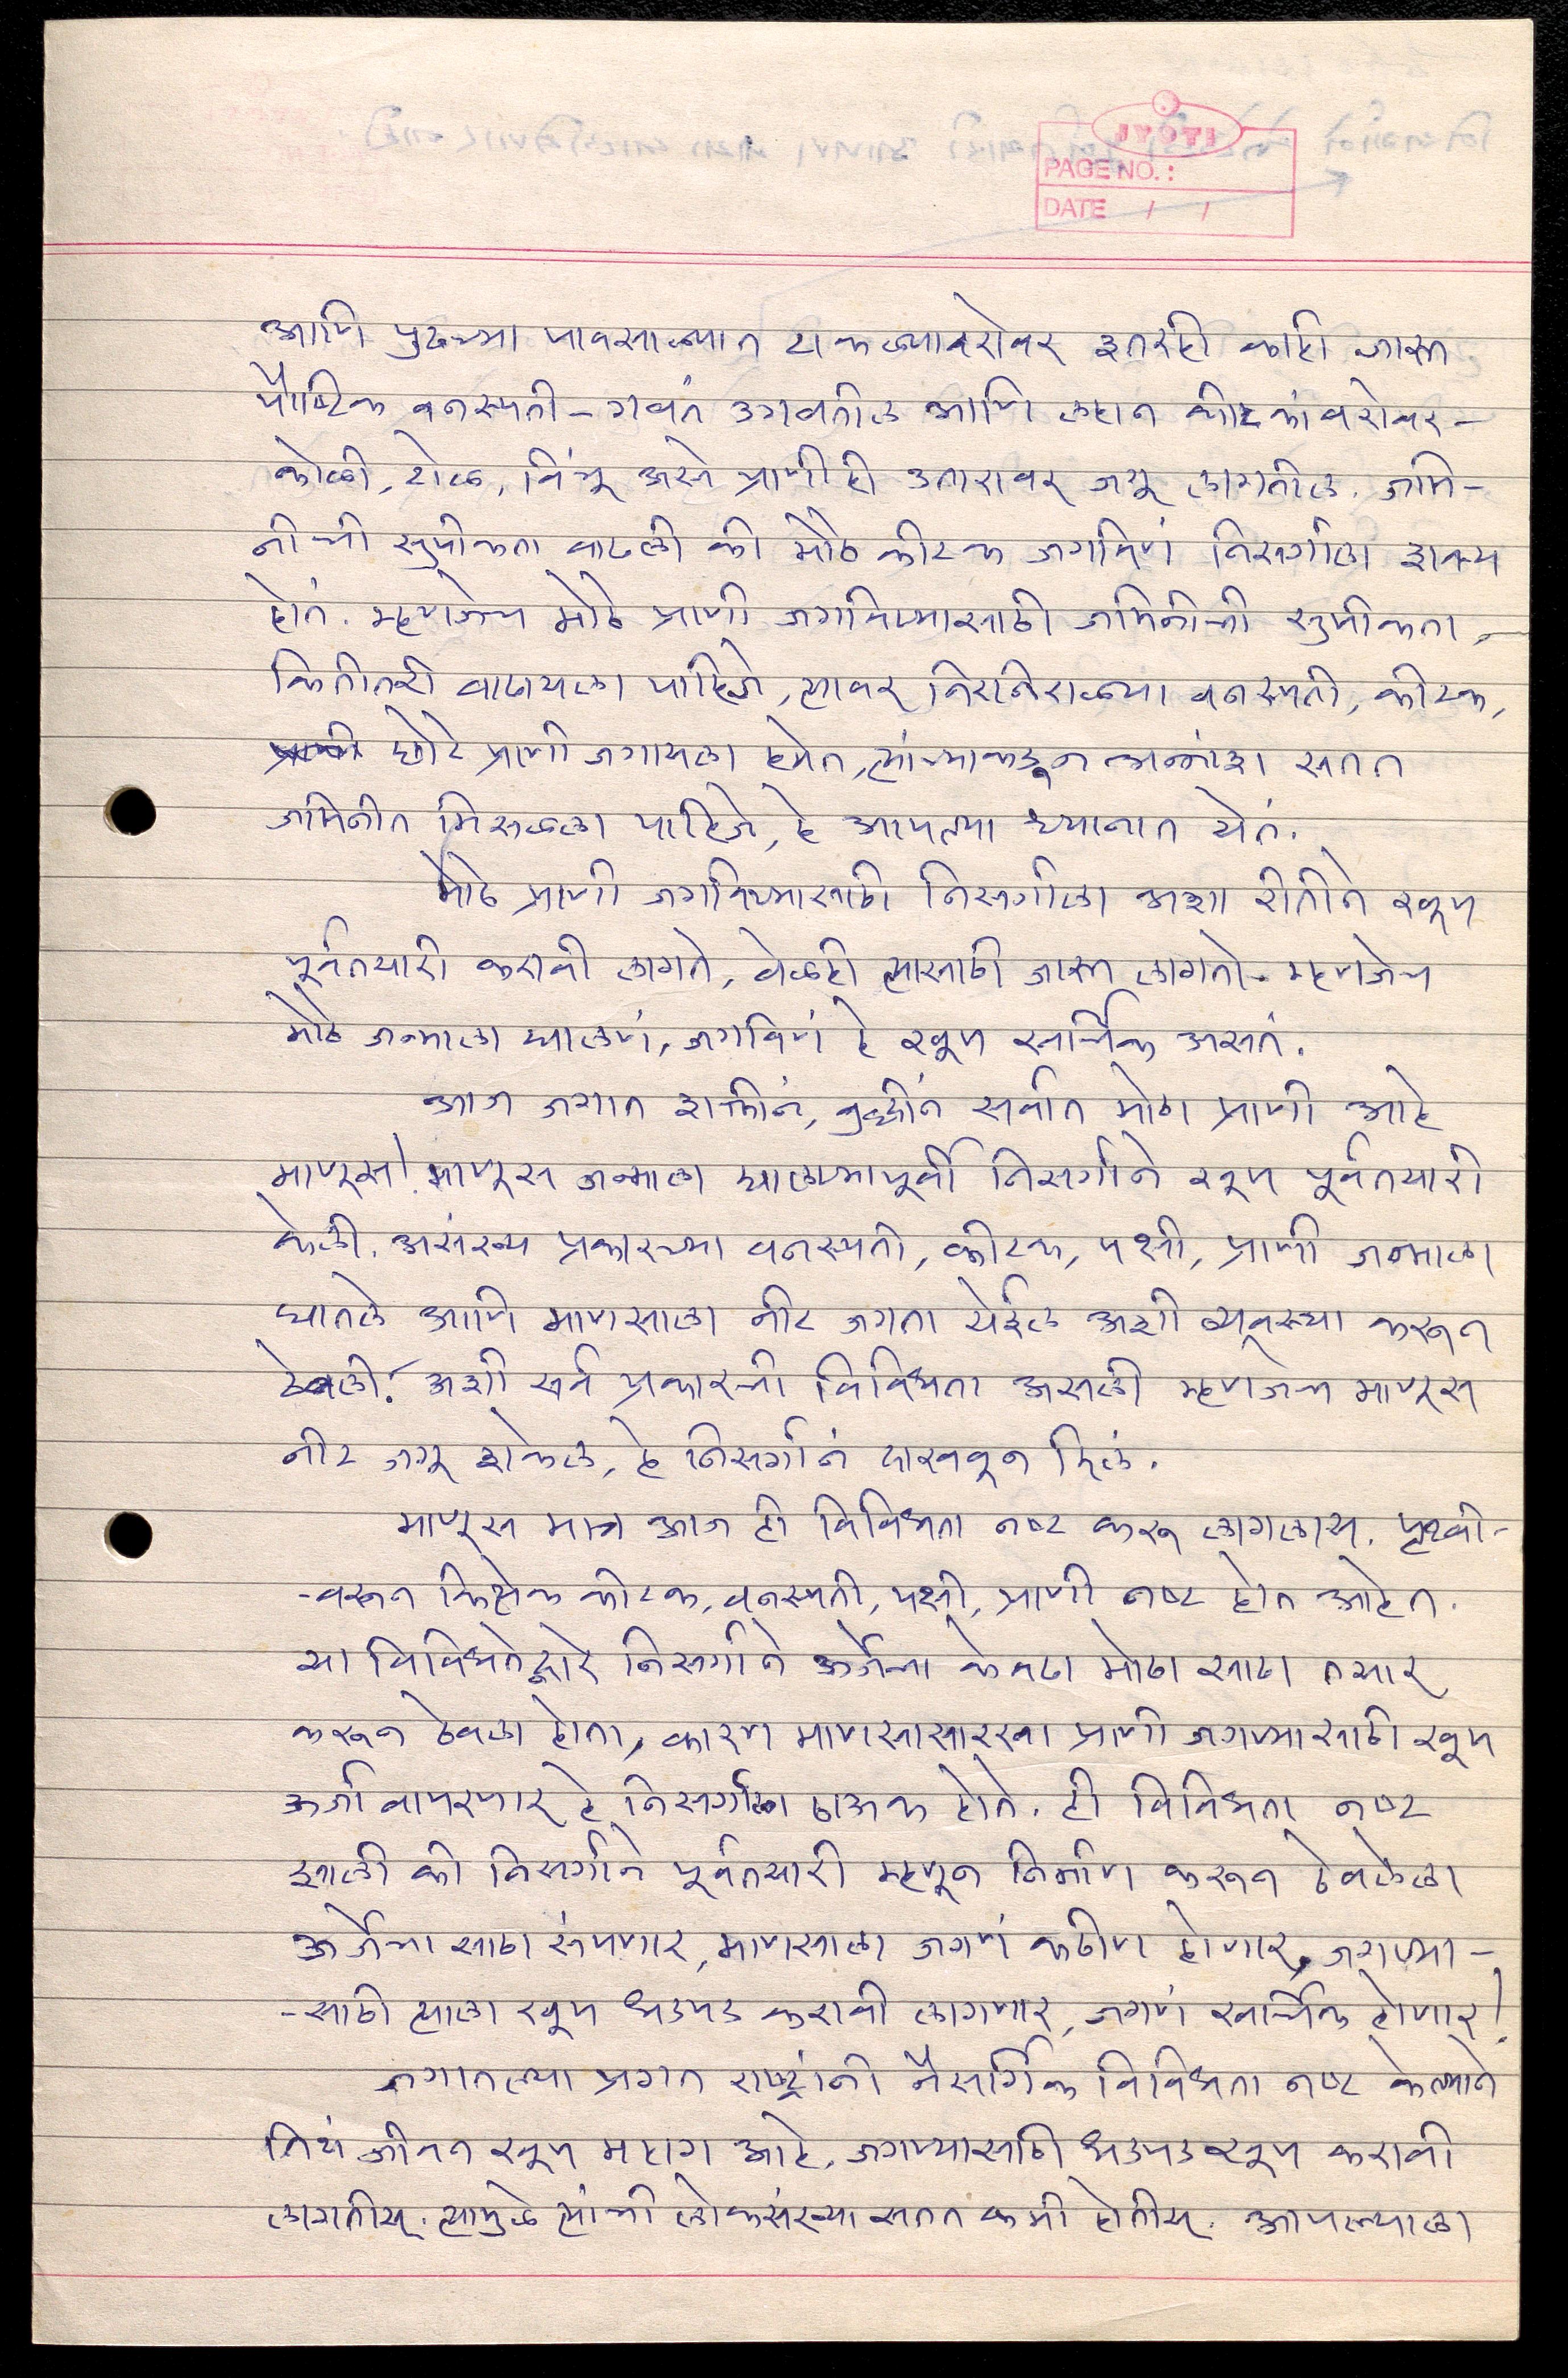 JYOTI
PAGE NO.:
DATE / /
आणि पुढच्या पावसाळ्यात टाकळ्याबरोबर इतरही काही जास्त
पौष्टिक वनस्पती - गवतं उगवतील आणि लहान कीटकांबरोबर -
कोळी, टोळ, विंचू असे प्राणीही उतारावर जगू लागतील. जमि-
नीची सुपीकता वाढली की मोठे कीटक जगविणं निसर्गाला शक्य
होतं. म्हणजेच मोठे प्राणी जगविण्यासाठी जमिनीची सुपीकता
कितीतरी वाढायला पाहिजे, त्यावर निरनिराळ्या वनस्पती, कीटक,
छोटे प्राणी जगायला हवेत, त्यांच्याकडून अन्नांश सतत
जमिनीत मिसळला पाहिजे, हे आपल्या ध्यानात येतं.
मोठे प्राणी जगविण्यासाठी निसर्गाला अशा रीतीने खूप
पूर्वतयारी करावी लागते, वेळही त्यासाठी जास्त लागतो. म्हणजेच
मोठे जन्माला घालणं, जगविणं हे खूप खार्चिक असतं.
आज जगात शक्तीनं, बुद्धीनं सर्वात मोठा प्राणी आहे
माणूस! माणूस जन्माला घालण्यापूर्वी निसर्गाने खूप पूर्वतयारी
केली. असंख्य प्रकारच्या वनस्पती, कीटक, पक्षी, प्राणी जन्माला
घातले आणि माणसाला नीट जगता येईल अशी व्यवस्था करून
ठेवली. अशी सर्व प्रकारची विविधता असली म्हणजेच माणूस
नीट जगू शकेल, हे निसर्गानं दाखवून दिलं.
माणूस मात्र आज ही विविधता नष्ट करू लागलाय. पृथ्वी-
-वरून कित्येक कीटक, वनस्पती, पक्षी, प्राणी नष्ट होत आहेत.
या विविधतेद्वारे निसर्गाने ऊर्जेचा केवढा मोठा साठा तयार
करून ठेवला होता, कारण माणसासारखा प्राणी जगण्यासाठी खूप
ऊर्जा वापरणार हे निसर्गाला ठाऊक होते. ही विविधता नष्ट
झाली की निसर्गाने पूर्वतयारी म्हणून निर्माण करून ठेवलेला
ऊर्जेचा साठा संपणार, माणसाला जगणं कठीण होणार, जगण्या-
-साठी त्याला खूप धडपड करावी लागणार, जगणं खार्चिक होणार!
जगातल्या प्रगत राष्ट्रांनी नैसर्गिक विविधता नष्ट केल्याने
तिथं जीवन खूप महाग आहे, जगण्यासाठी धडपड खूप करावी
लागतीय. त्यामुळे त्यांची लोकसंख्या सतत कमी होतीय. आपल्याला